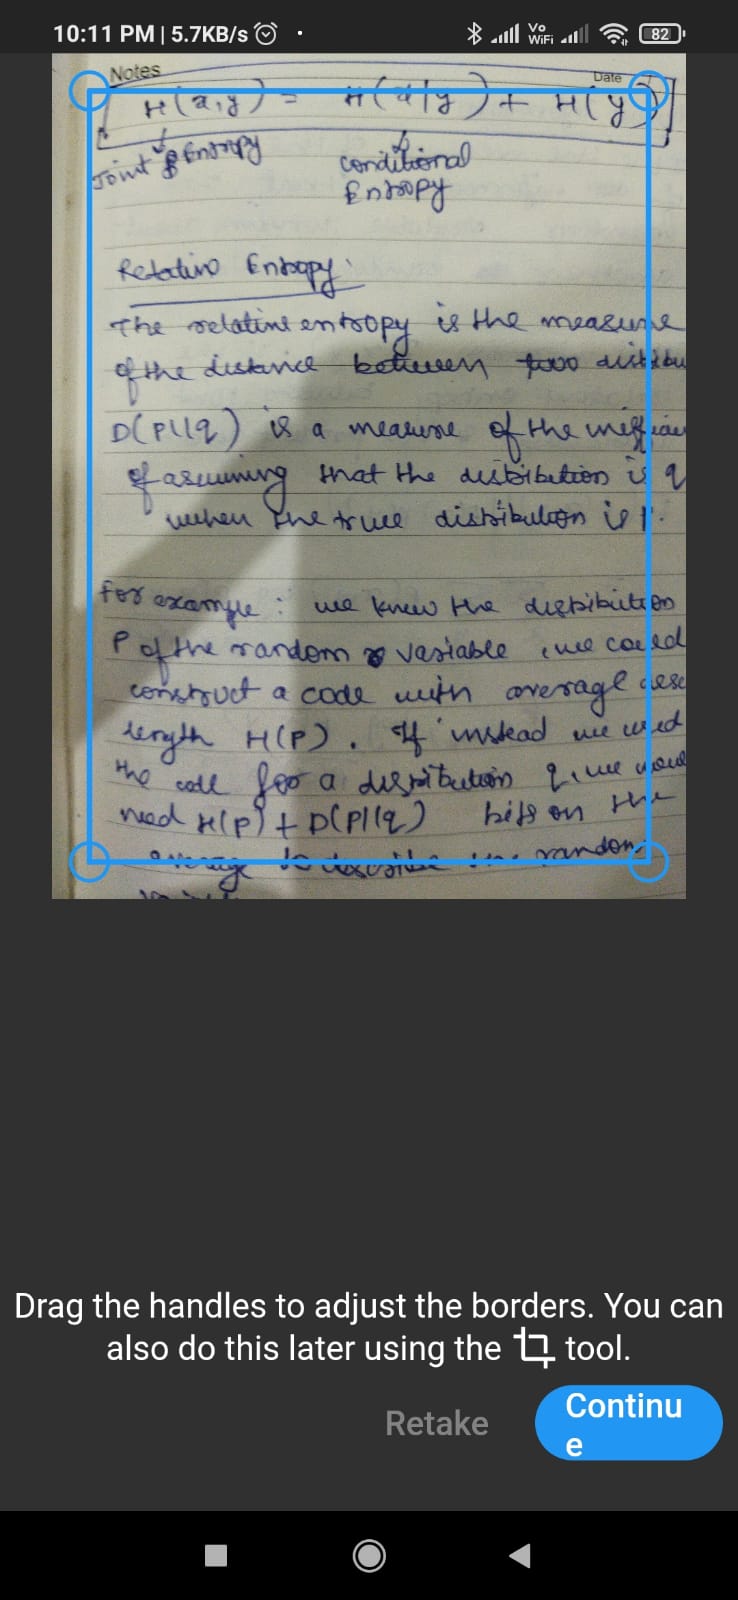 10:11 PM | 5.7KB/s
Vo WiFi 82
Notes
Date
H(x,y) = H(x|y) + H(y)
Joint Entropy
conditional
Entropy
Relative Entropy:
The relative entropy is the measure
of the distance between two distribu
D(P||q) is a measure of the
of assuming that the distribution is q
when the true distribution is p.
For example: we knew the distribution
P of the random variable, we could
construct a code with average desc
length H(P). If instead we used
the code for a distribution q, we would
need H(p) + D(P||q) bits on the
average to describe the random
Drag the handles to adjust the borders. You can
also do this later using the tool.
Retake
Continu
e